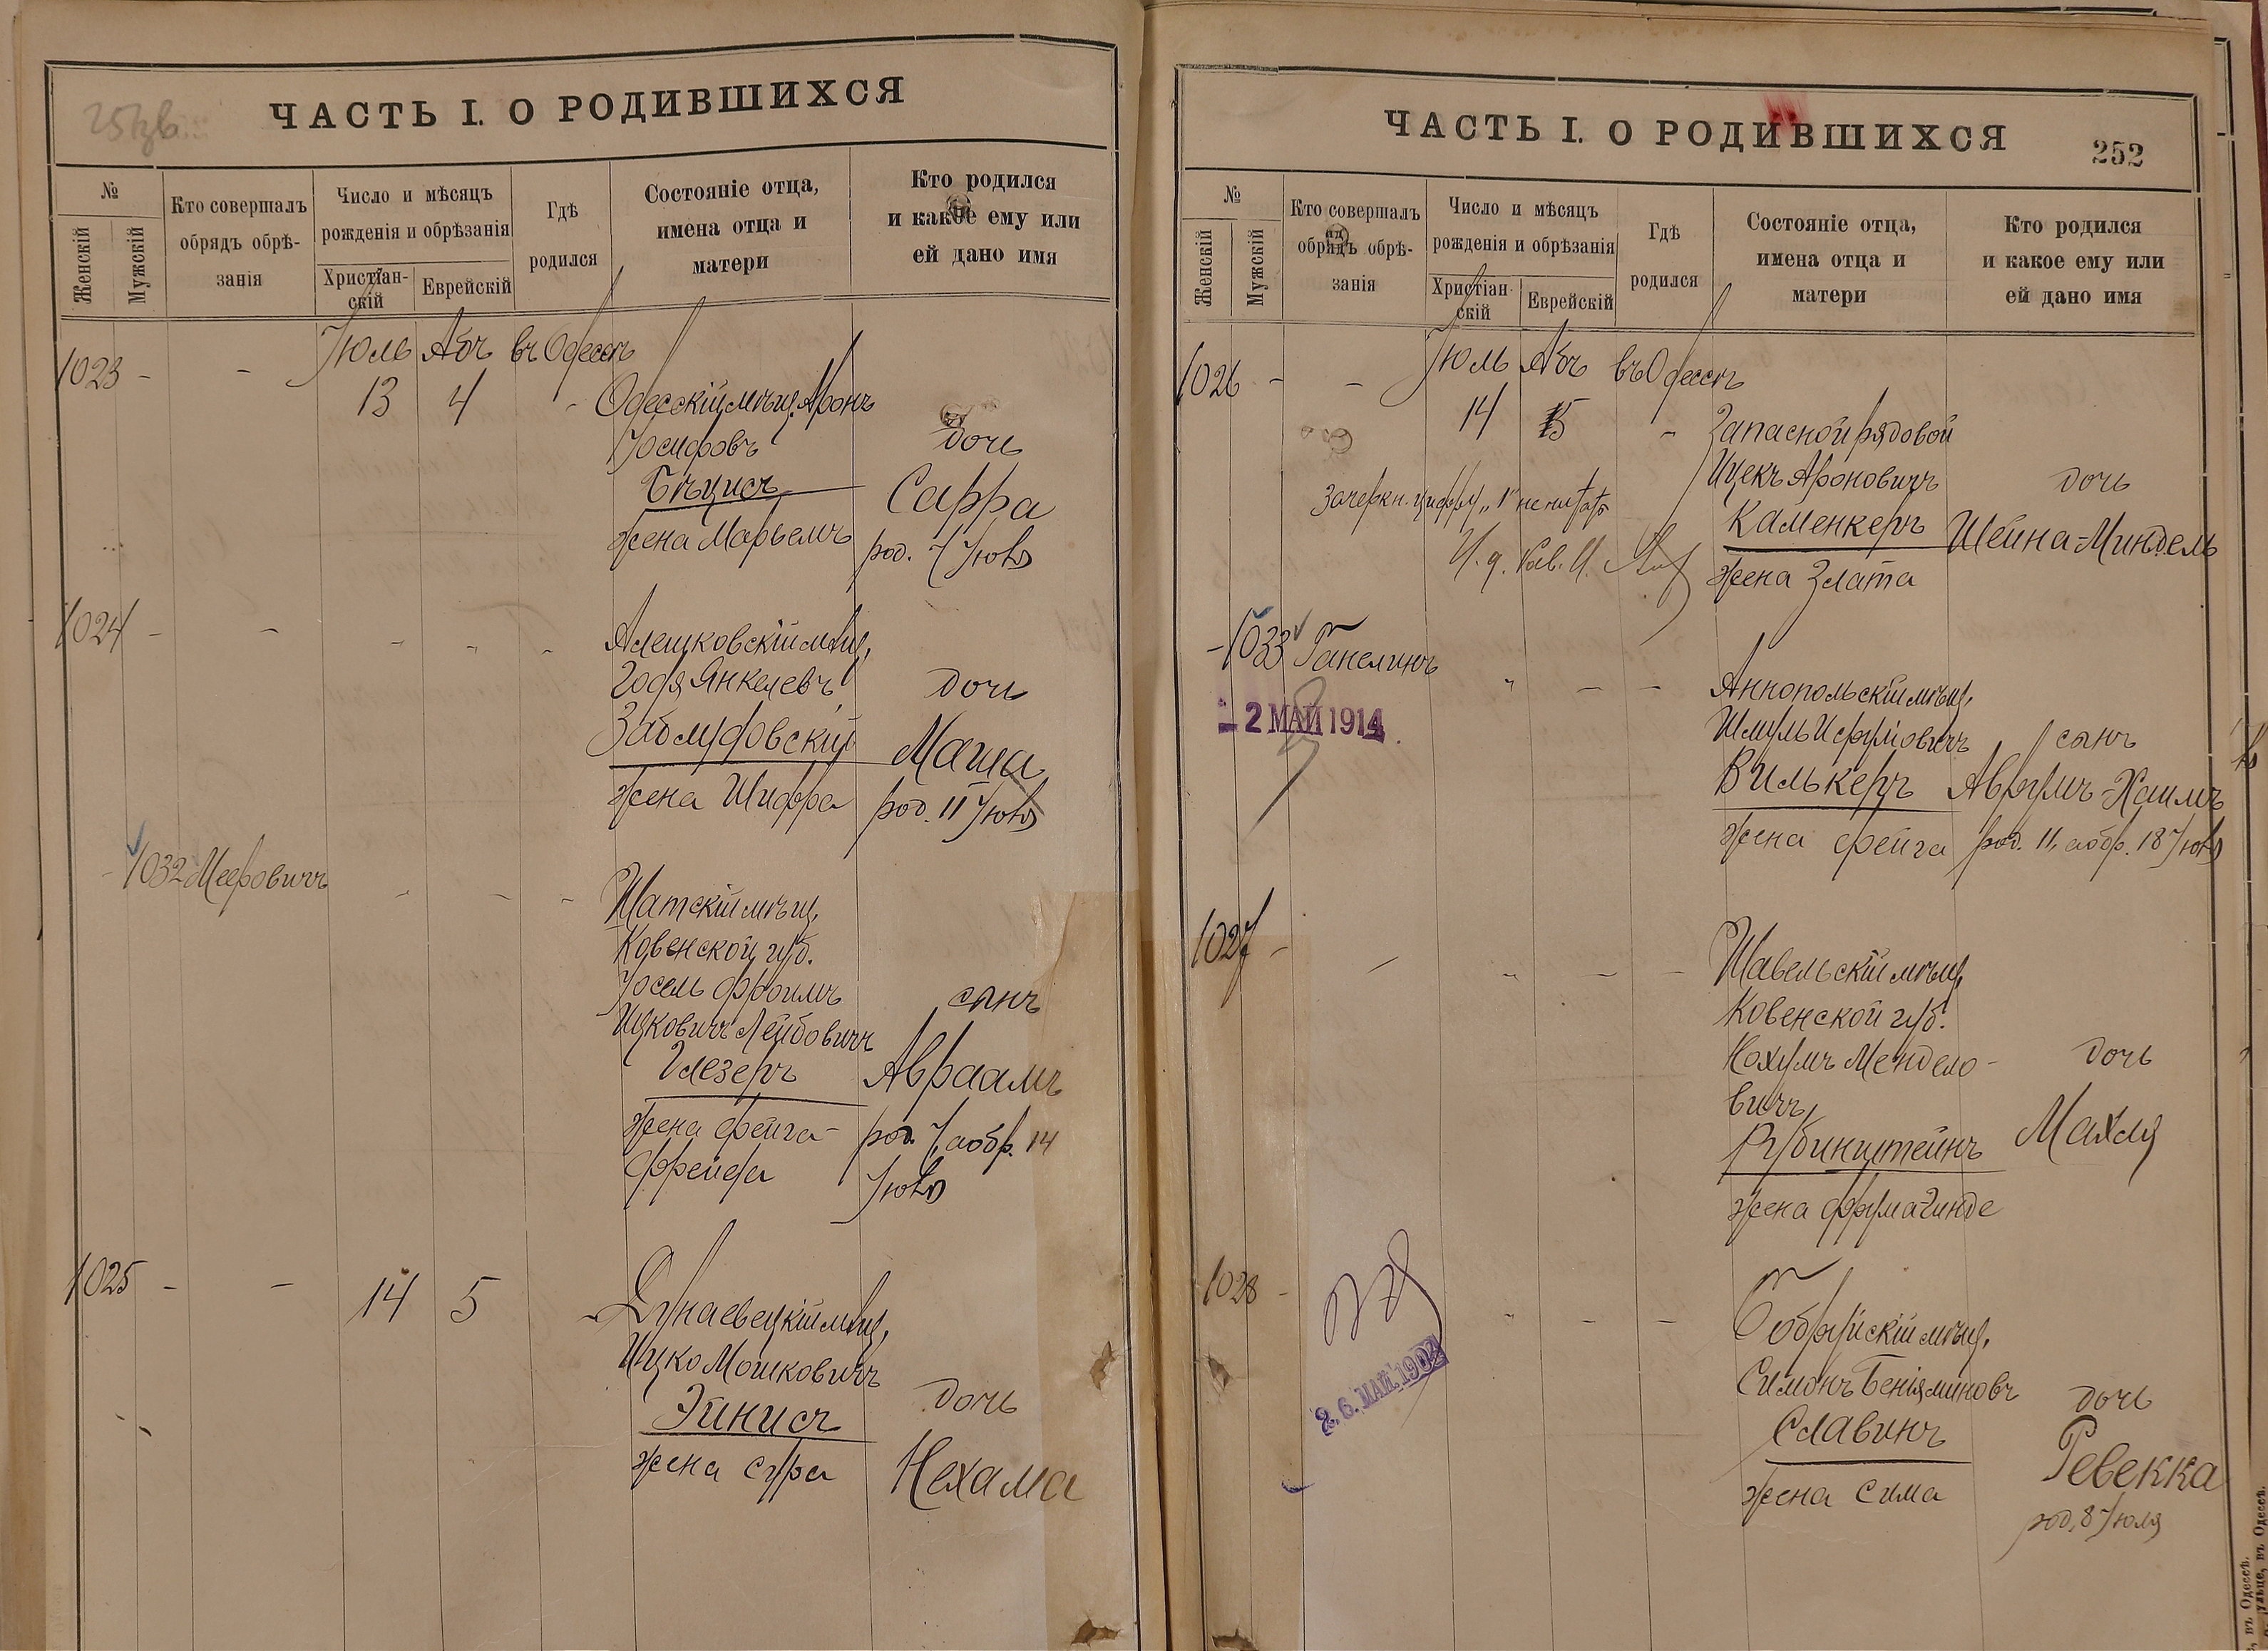 ЧАСТЬ I. О РОДИВШИХСЯ
№
Женскій
Мужскій
Кто совершалъ
обрядъ обрѣ-
занія
Число и мѣсяцъ
рожденія и обрѣзанія
Христіан-
скій
Еврейскій
Гдѣ
родился
Состояніе отца,
имена отца и
матери
Кто родился
и какое ему или
ей дано имя
Іюль Абъ въ Одессѣ
1023 - - 13 4 -
Одесскій мѣщ. Аронъ
Іосифовъ
Бѣцисъ
жена Марьемъ
дочь
Сарра
род. 7 Іюля
1024 - - - - -
Алешковскій мѣщ.
Годя Янкелевъ
Заблудовскій
жена Шифра
дочь
Маша
род. 11 Іюля
- 1032 Мееровичъ - - -
Шатскій мѣщ.
Ковенской губ.
Іосель Фроимъ
Ицковичъ Лейбовичъ
Глезеръ
жена Фейга-
Фрейда
сынъ
Авраамъ
род. 7, а обр. 14
Іюля
1025 - - 14 5 -
Дунаевецкій мѣщ.
Ицко Мошковичъ
Эйнисъ
жена Сура
дочь
Нехама
ЧАСТЬ I. О РОДИВШИХСЯ
252
№
Женскій
Мужскій
Кто совершалъ
обрядъ обрѣ-
занія
Число и мѣсяцъ
рожденія и обрѣзанія
Христіан-
скій
Еврейскій
Гдѣ
родился
Состояніе отца,
имена отца и
матери
Кто родился
и какое ему или
ей дано имя
Іюль Абъ въ Одессѣ
1026 - - 14 5 -
Зачеркн. цифру „1" не читать
И. д. Рав.
Запасной рядовой
Ицекъ Ароновичъ
Каменкеръ
жена Злата
дочь
Шейна-Миндель
- 1033 Ганелинъ " - -
- 2 МАЙ 1914
Аннопольскій мѣщ.
Шмуль Исруліовичъ
Вилькеръ
жена Фейга
сынъ
Аврумъ-Хаимъ
род. 11, а обр. 18 Іюля
1027 - - " - -
Шавельскій мѣщ.
Ковенской губ.
Нохумъ Менделе-
вичъ
Рубинштейнъ
жена Фрума Гинде
дочь
Махля
1028 - " - -
26. МАЙ. 1902
Бобруйскій мѣщ.
Симонъ Беніяминовъ
Славинъ
жена Сима
дочь
Ревекка
род. 8 Іюля
въ Одессѣ.
улице, въ Одессѣ.